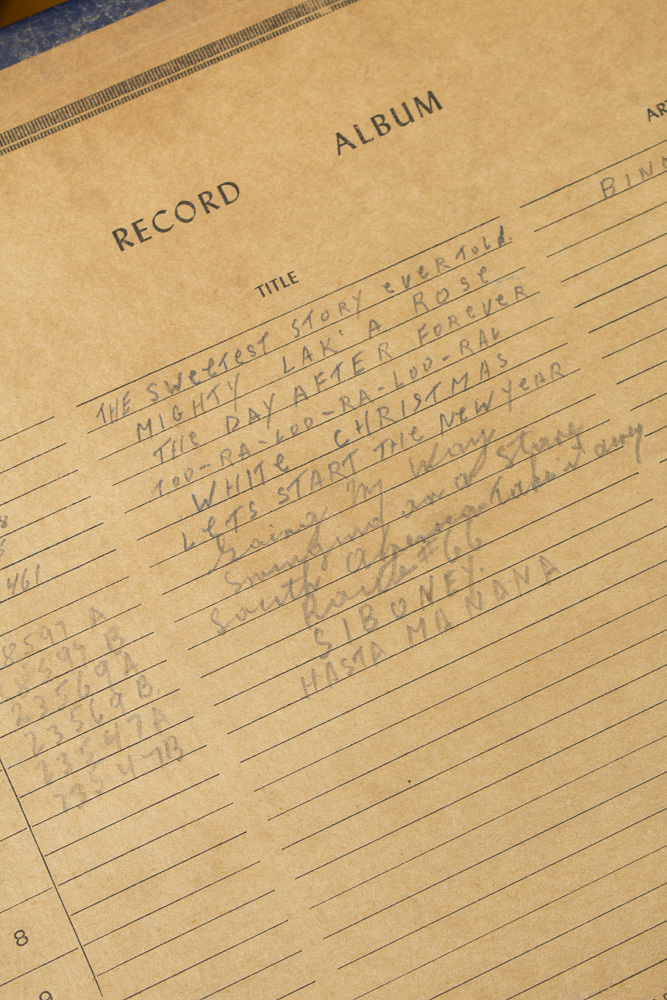 RECORD ALBUM
TITLE
BIN
THE SWeeTEST STORY eVeRToLd.
MIGHTY LAK' A ROSe
THe DAY AFTER FOReVeR
TOO-RA-LOO-RA-LOO-RAL
WHITe CHRISTMAS
LeTS START THe NeW YeAR
Going My Way
Swinging on a Stare
South America Take it away
Route #66
SIBONEY.
HASTA MANANA
461
8597 A
8597 B
23569 A
23569 B
23547A
23547B
8
9